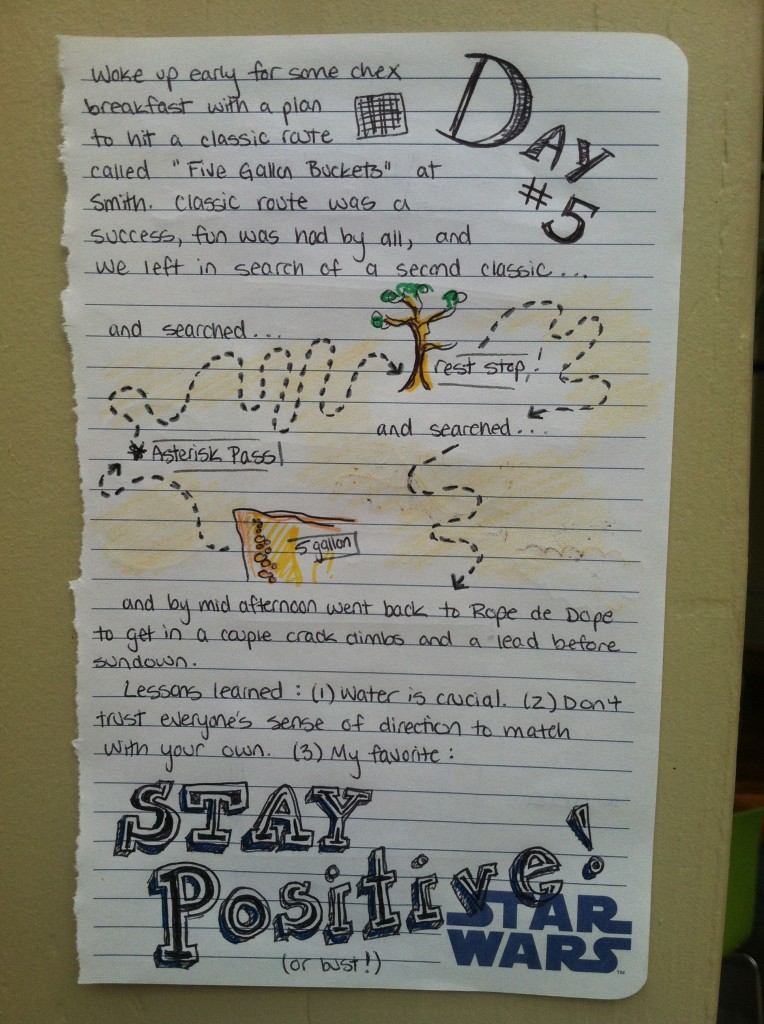 Woke up early for some chex
breakfast with a plan
to hit a classic route
called "Five Gallon Buckets" at
Smith. Classic route was a
success, fun was had by all, and
we left in search of a second classic...
DAY
#5
and searched...
rest stop!
and searched...
* Asterisk Pass!
5 gallon
and by mid afternoon went back to Rope de Dope
to get in a couple crack climbs and a lead before
sundown.
Lessons learned: (1) Water is crucial. (2) Don't
trust everyone's sense of direction to match
with your own. (3) My favorite:
STAY
Positive!
(or bust!)
STAR
WARS™